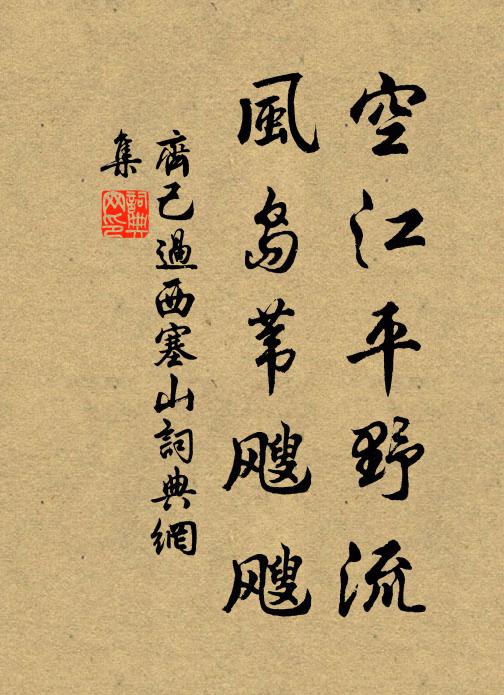 空江平野流
風島葦颼颼
齊己過西塞山詞典網
集
詞典網印